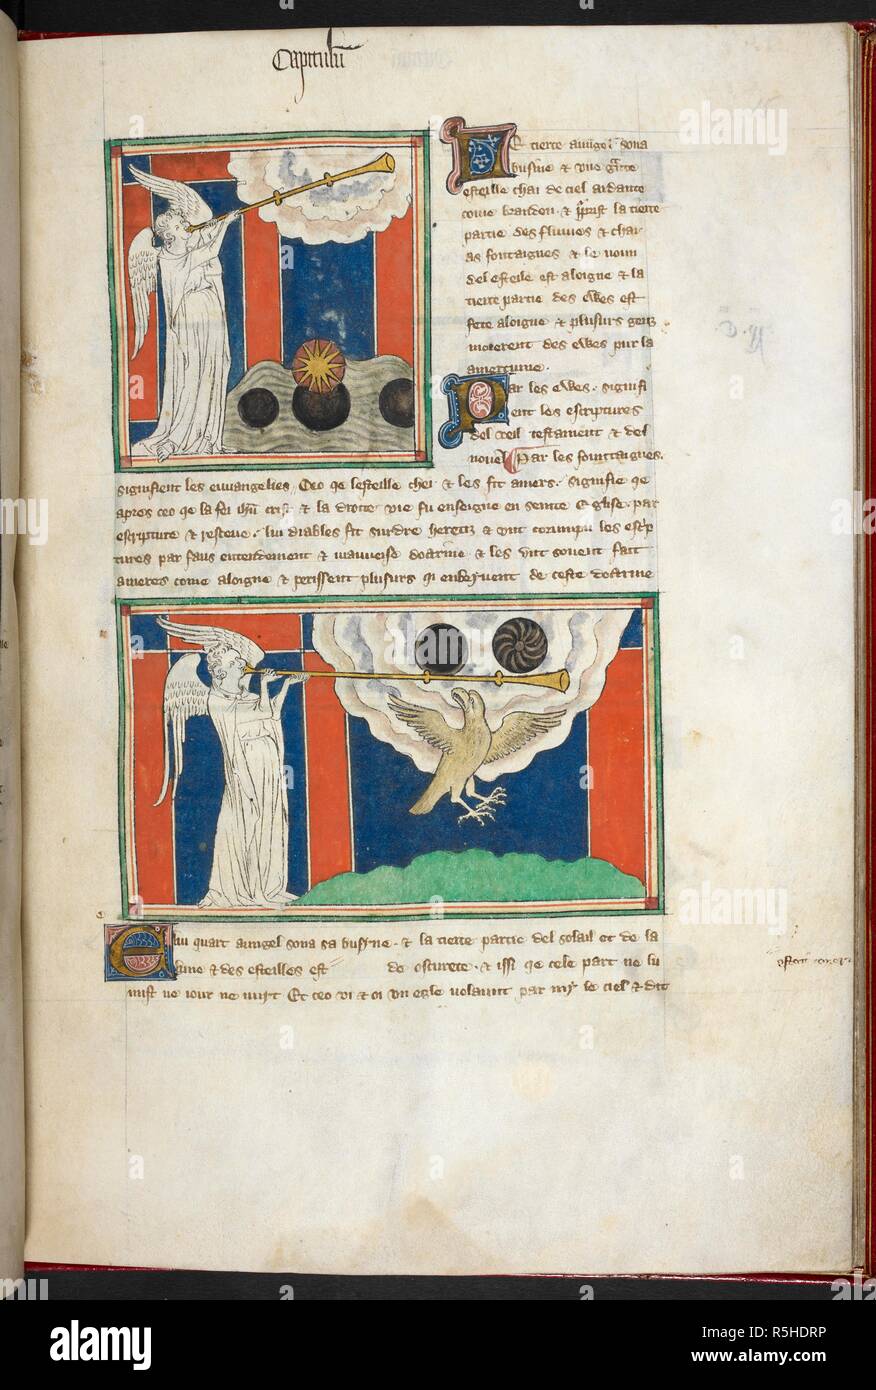 Capitulum
E tierce aungel sona
busine & une grante
esteille chai de ciel ardante
come brandon & prist la tierce
partie des fluvies & chai
as fontaignes & le noun
del esteile est aloigne & la
tierce partie des ewes est
fete aloigne & plusurs genz
morerent des ewes pur la
amertume.
Par les ewes signifi
ent les escriptures
del veil testament & del
novel Par les fountaignes.
signifient les ewangelies Ceo qe lesteille chei & les fit amers signifie qe
apres ceo qe la fei ihu crist & la droite vie fu enseigne en seinte Eglise par
escripture & lui diables fit surdre heretiz & unt corumpu les escrip
tures par faus entendement & mauveise doctrine & les unt sovent fait
ameres come aloigne & perissent plusurs qi enbeyvent de ceste doctrine
E lui quart aungel sona sa busyne & la tierce partie del solail et de la
lune & des esteilles est de oscurete & issi qe cele part ne lu
mist ne iour ne nuyt Et ceo vi & oi un egle volaunt par my le ciel & dit
alamy
Image ID: R5HDRP
www.alamy.com